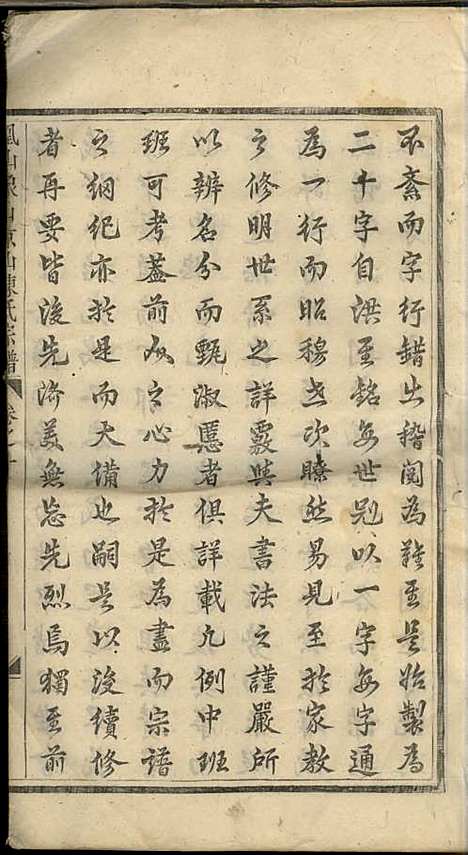 不紊而字行錯出稽閱為難至是始製為
二十字自洪至銘每世別以一字每字通
為一行而昭穆世次瞭然易見至於家教
之修明世系之詳覈與夫書法之謹嚴所
以辨名分而甄淑慝者俱詳載凡例中班
班可考蓋前人之心力於是為盡而宗譜
之綱紀亦於是而大備也嗣是以後續修
者再要皆後先濟美無忘先烈焉獨至前
山陳氏宗譜 卷之一